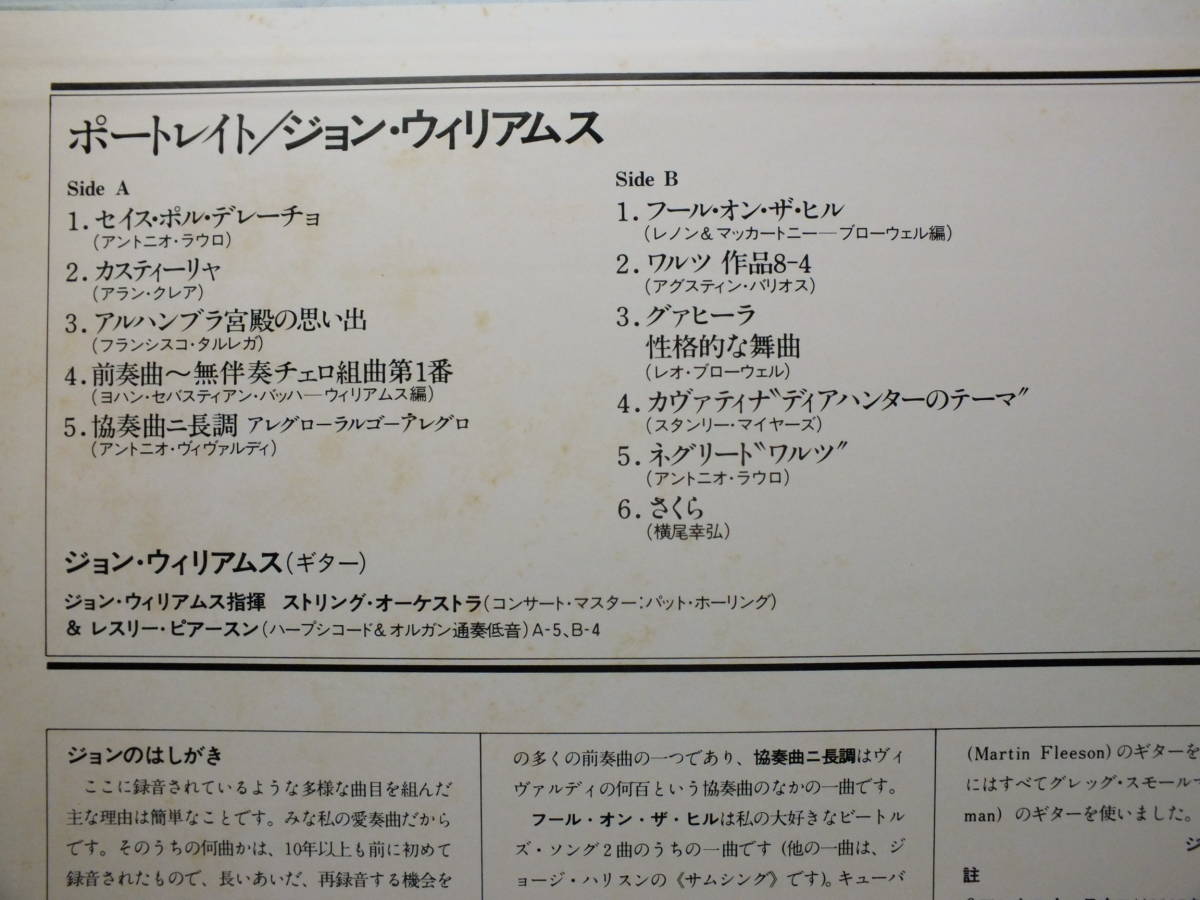 ポートレイト/ジョン・ウィリアムス
Side A
1. セイス・ポル・デレーチョ
(アントニオ・ラウロ)
2. カスティーリャ
(アラン・クレア)
3. アルハンブラ宮殿の思い出
(フランシスコ・タルレガ)
4. 前奏曲〜無伴奏チェロ組曲第1番
(ヨハン・セバスティアン・バッハ―ウィリアムス編)
5. 協奏曲ニ長調 アレグローラルゴーアレグロ
(アントニオ・ヴィヴァルディ)
Side B
1. フール・オン・ザ・ヒル
(レノン&マッカートニー―ブローウェル編)
2. ワルツ 作品8-4
(アグスティン・バリオス)
3. グァヒーラ
性格的な舞曲
(レオ・ブローウェル)
4. カヴァティナ〝ディアハンターのテーマ〟
(スタンリー・マイヤーズ)
5. ネグリート〝ワルツ〟
(アントニオ・ラウロ)
6. さくら
(横尾幸弘)
ジョン・ウィリアムス(ギター)
ジョン・ウィリアムス指揮 ストリング・オーケストラ(コンサート・マスター:パット・ホーリング)
& レスリー・ピアースン(ハープシコード&オルガン通奏低音)A-5、B-4
ジョンのはしがき
ここに録音されているような多様な曲目を組んだ
主な理由は簡単なことです。みな私の愛奏曲だから
です。そのうちの何曲かは、10年以上も前に初めて
録音されたもので、長いあいだ、再録音する機会を
の多くの前奏曲の一つであり、協奏曲ニ長調はヴィ
ヴァルディの何百という協奏曲のなかの一曲です。
フール・オン・ザ・ヒルは私の大好きなビートル
ズ・ソング2曲のうちの一曲です(他の一曲は、ジ
ョージ・ハリスンの《サムシング》です)。キューバ
(Martin Fleeson)のギターを
にはすべてグレッグ・スモール
man) のギターを使いました。
ジ
註